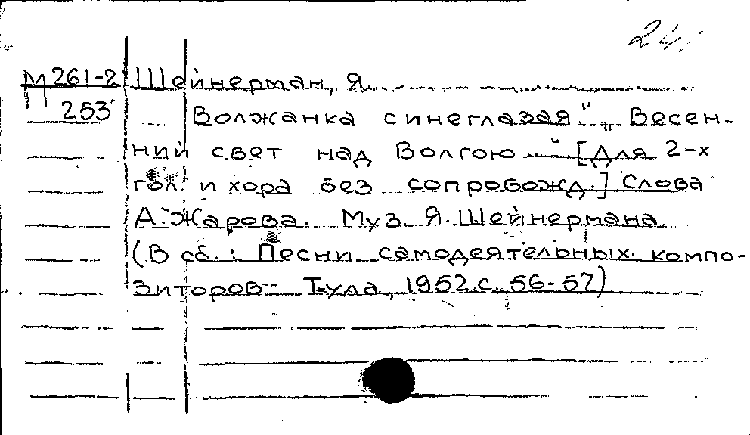 24.
М 261-2 Шейнерман, Я.
П 253 Волжанка синеглазая". „Весен-
ний свет над Волгою..." [Для 2-х
гол. и хора без сопровожд.] Слова
А. Жарова. Муз. Я. Шейнермана
(В сб.: Песни самодеятельных компо-
зиторов. Тула, 1952. с. 56-57)